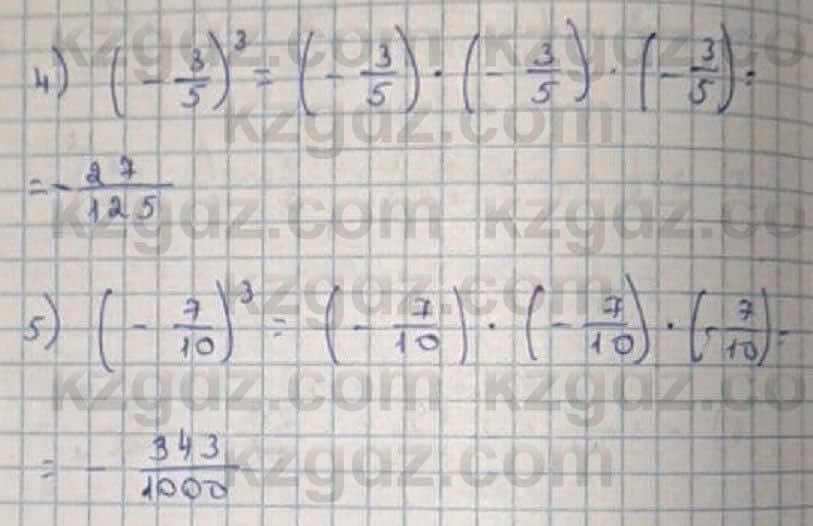 4) (-3/5)³ = (-3/5) · (-3/5) · (-3/5) =
= -27/125
5) (-7/10)³ = (-7/10) · (-7/10) · (-7/10) =
= -343/1000
kzgdz.com kzgdz.co
kzgdz.com
kzgdz.com kzgdz.co
kzgdz.com
kzgdz.com kzgdz.co
kzgdz.com